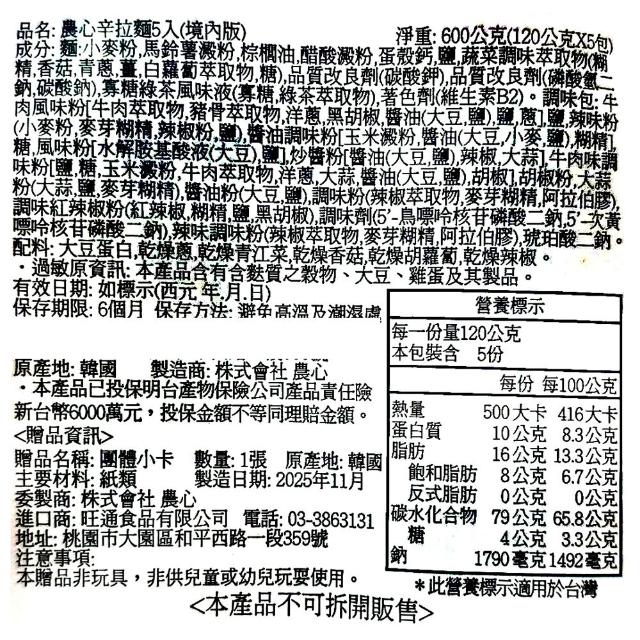 品名: 農心辛拉麵5入(境內版)
淨重: 600公克(120公克X5包)
成分: 麵:小麥粉,馬鈴薯澱粉,棕櫚油,醋酸澱粉,蛋殼鈣,鹽,蔬菜調味萃取物(糊
精,香菇,青蔥,薑,白蘿蔔萃取物,糖),品質改良劑(碳酸鉀),品質改良劑(磷酸氫二
鈉,碳酸鈉),寡糖綠茶風味液(寡糖,綠茶萃取物),著色劑(維生素B2)。調味包:牛
肉風味粉[牛肉萃取物,豬骨萃取物,洋蔥,黑胡椒,醬油(大豆,鹽),鹽,蔥],鹽,辣味粉
(小麥粉,麥芽糊精,辣椒粉,鹽),醬油調味粉[玉米澱粉,醬油(大豆,小麥,鹽),糊精],
糖,風味粉[水解胺基酸液(大豆),鹽],炒醬粉[醬油(大豆,鹽),辣椒,大蒜],牛肉味調
味粉[鹽,糖,玉米澱粉,牛肉萃取物,洋蔥,大蒜,醬油(大豆,鹽),胡椒],胡椒粉,大蒜
粉(大蒜,鹽,麥芽糊精),醬油粉(大豆,鹽),調味粉(辣椒萃取物,麥芽糊精,阿拉伯膠),
調味紅辣椒粉(紅辣椒,糊精,鹽,黑胡椒),調味劑(5'-鳥嘌呤核苷磷酸二鈉,5'-次黃
嘌呤核苷磷酸二鈉),辣味調味粉(辣椒萃取物,麥芽糊精,阿拉伯膠),琥珀酸二鈉。
配料: 大豆蛋白,乾燥蔥,乾燥青江菜,乾燥香菇,乾燥胡蘿蔔,乾燥辣椒。
・過敏原資訊: 本產品含有含麩質之穀物、大豆、雞蛋及其製品。
有效日期: 如標示(西元 年.月.日)
保存期限: 6個月 保存方法: 避免高溫及潮濕處
原產地: 韓國 製造商: 株式會社 農心
・本產品已投保明台產物保險公司產品責任險
新台幣6000萬元，投保金額不等同理賠金額。
<贈品資訊>
贈品名稱: 團體小卡 數量: 1張 原產地: 韓國
主要材料: 紙類 製造日期: 2025年11月
委製商: 株式會社 農心
進口商: 旺通食品有限公司 電話: 03-3863131
地址: 桃園市大園區和平西路一段359號
注意事項:
本贈品非玩具，非供兒童或幼兒玩耍使用。
營養標示
每一份量120公克
本包裝含 5份
每份 每100公克
熱量 500大卡 416大卡
蛋白質 10公克 8.3公克
脂肪 16公克 13.3公克
飽和脂肪 8公克 6.7公克
反式脂肪 0公克 0公克
碳水化合物 79公克 65.8公克
糖 4公克 3.3公克
鈉 1790毫克 1492毫克
＊此營養標示適用於台灣
<本產品不可拆開販售>